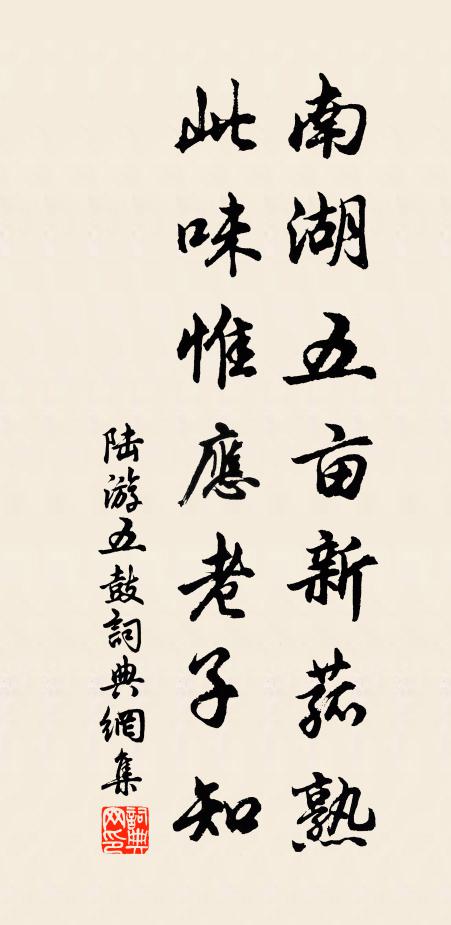 南湖五亩新菰熟
此味惟應老子知
陆游五鼓詞典網集
詞典
网印